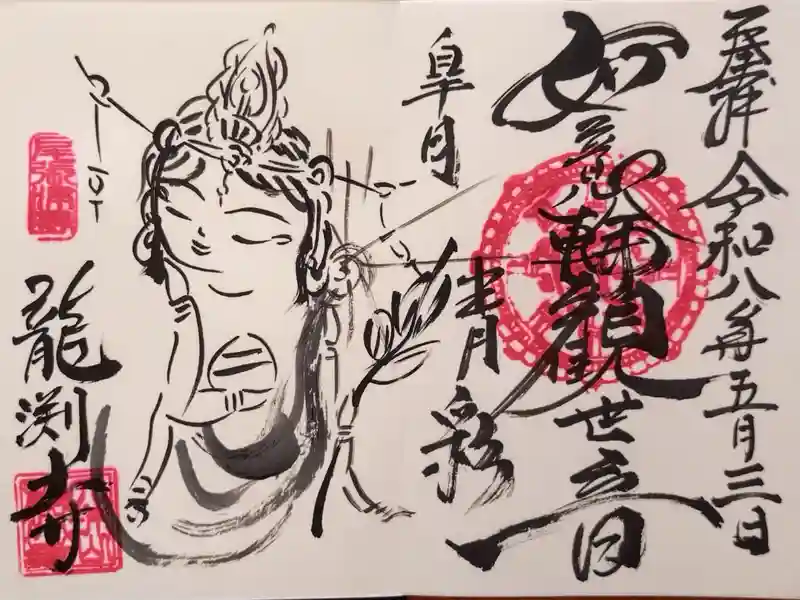 奉拝 令和八年五月三日
如意輪觀世音
皐月
半月
彩
龍渕寺